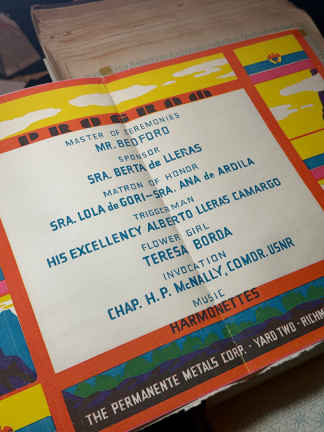 PROGRAM
MASTER OF CEREMONIES
MR. BEDFORD
SPONSOR
SRA. BERTA de LLERAS
MATRON OF HONOR
SRA. LOLA de GORI-SRA. ANA de ARDILA
TRIGGERMAN
HIS EXCELLENCY ALBERTO LLERAS CAMARGO
FLOWER GIRL
TERESA BORDA
INVOCATION
CHAP. H. P. McNALLY, COMDR. USNR
MUSIC
HARMONETTES
THE PERMANENTE METALS CORP. · YARD TWO · RICHM